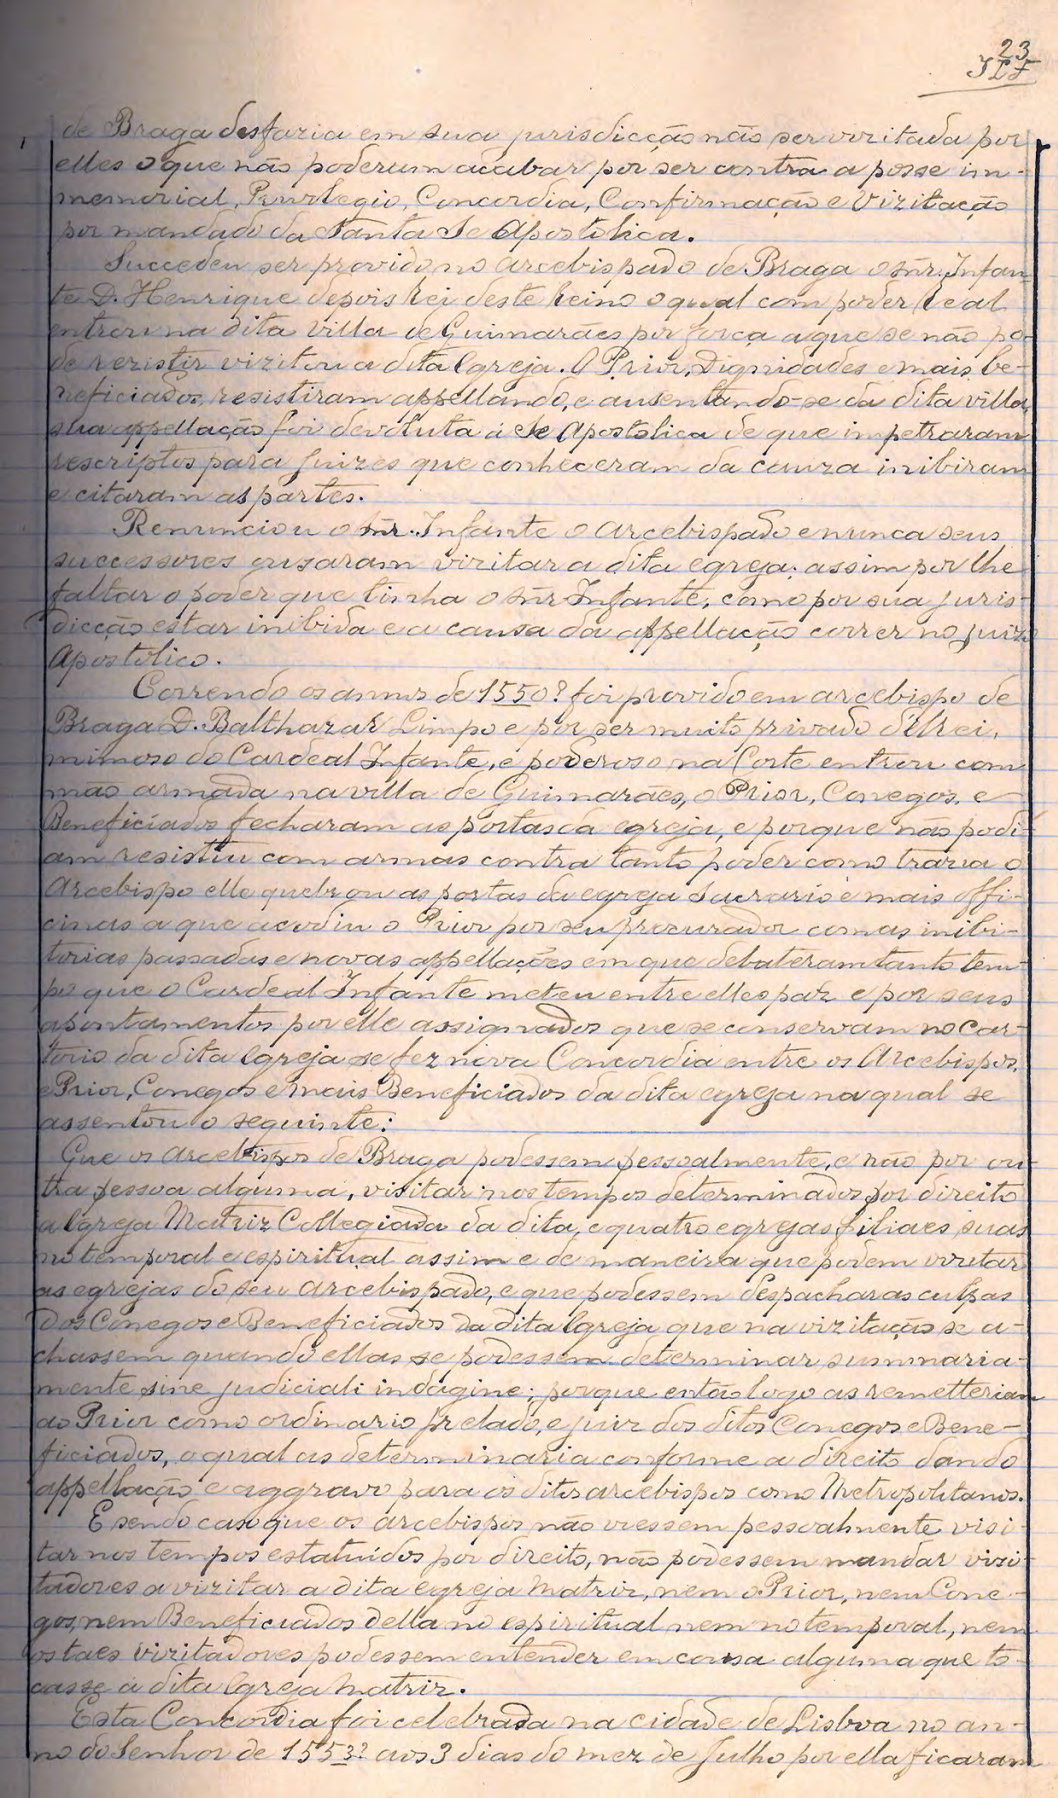 23
de Braga desfazia em sua jurisdicção não ser vizitada por
elles o que não poderam acabar por ser contra a posse im-
memorial, Privilegio, Concordia, Confirmação e Vizitação
por mandado da Santa Se Apostolica.
Succedeu ser provido no arcebispado de Braga o Snr. Infan-
te D. Henrique depois Rei deste Reino o qual com poder Real
entrou na dita villa de Guimarães por força a que se não po-
de rezistir vizitou a dita Egreja. O Prior, Dignidades e mais be-
neficiados, resistiram appellando, e ausentando-se da dita villa,
sua appellação foi devoluta á Se Apostolica de que impetraram
rescriptos para Juizes que conheceram da cauza inibiram
e citaram as partes.
Renunciou o Snr. Infante o Arcebispado e nunca seus
successores ousaram vizitar a dita egreja; assim por lhe
faltar o poder que tinha o Snr Infante, como por sua juris-
dicção estar inibida e a causa da appellação correr no juizo
Apostolico.
Correndo os annos de 1550? foi provido em arcebispo de
Braga D. Balthazar Limpo e por ser muito privado d'Elrei,
mimoso do Cardeal Infante, e poderoso na Corte entrou com
mão armada na villa de Guimarães, o Prior, Conegos, e
Beneficiados fecharam as portas da egreja, e porque não podi-
am resistir com armas contra tanto poder como trazia o
Arcebispo elle quebrou as portas da egreja Sacrario e mais offi-
cinas a que acodiu o Prior por seu procurador com as inibi-
torias passadas e novas appellações em que debateram tanto tem-
po que o Cardeal Infante meteu entre elles paz e por seus
apontamentos por elle assignados que se conservam no Car-
torio da dita Egreja se fez nova Concordia entre os Arcebispos,
e Prior, Conegos e mais Beneficiados da dita egreja na qual se
assentou o seguinte:
Que os Arcebispos de Braga podessem pessoalmente, e não por ou-
tra pessoa alguma, visitar nos tempos determinados por direito
a Egreja Matriz Collegiada da dita, e quatro egrejas filiaes suas
no temporal e espiritual assim e de maneira que podem vizitar
as egrejas do seu Arcebispado, e que podessem despachar as culpas
dos Conegos e Beneficiados da dita Egreja que na vizitação se a-
chassem quando ellas se podessem determinar summaria-
mente sine judiciali indagine; porque então logo as remetteriam
ao Prior como ordinario prelado, e juiz dos ditos Conegos e Bene-
ficiados, o qual as determinaria conforme a direito dando
appellação e aggravo para os ditos arcebispos como Metropolitanos.
E sendo caso que os arcebispos não viessem pessoalmente visi-
tar nos tempos estatuidos por direito, não podessem mandar vizi-
tadores a vizitar a dita egreja Matriz, nem o Prior, nem Cone-
gos, nem Beneficiados della no espiritual nem no temporal, nem
os taes vizitadores podessem entender em cousa alguma que to-
casse a dita Egreja Matriz.
Esta Concordia foi celebrada na cidade de Lisboa no an-
no do Senhor de 1553? aos 3 dias do mez de Julho por ella ficaram